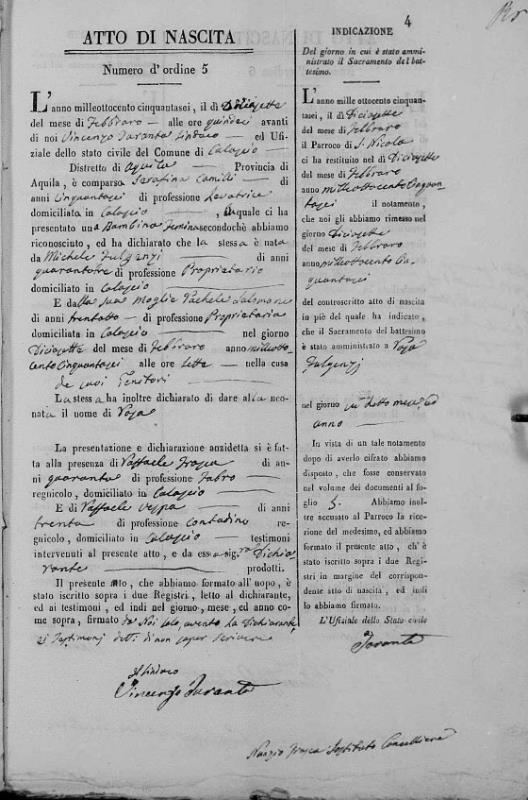 4
ATTO DI NASCITA
Numero d'ordine 5
L'anno milleottocento cinquantasei, il dì Diciasette
del mese di Febbraro alle ore quindici avanti
di noi Vincenzo Taranta Sindaco ed Ufi-
ziale dello stato civile del Comune di Calascio
Distretto di Aquila Provincia di
Aquila, è comparsa Serafina Camilli di
anni Cinquantasei di professione Levatrice
domiciliata in Calascio, la quale ci ha
presentato una Bambina secondochè abbiamo
riconosciuto, ed ha dichiarato che la stessa è nata
da Michele Fulgenzj di anni
quarantatre di professione Proprietario
domiciliato in Calascio
E dalla sua moglie Rachele Salomone
di anni trentotto di professione Proprietaria
domiciliata in Calascio nel giorno
Diciasette del mese di Febbraro anno milleotto
cento Cinquantasei alle ore sette nella casa
de suoi Genitori
La stessa ha inoltre dichiarato di dare alla neo-
nata il nome di
La presentazione e dichiarazione anzidetta si è fat-
ta alla presenza di Raffaele Frasca di an-
ni quaranta di professione Fabro
regnicolo, domiciliato in Calascio
E di Raffaele Vespa di anni
trenta di professione contadino re-
gnicolo, domiciliato in Calascio testimoni
intervenuti al presente atto, e da essa sig.ra Dichia
rante prodotti.
Il presente atto, che abbiamo formato all'uopo, è
stato iscritto sopra i due Registri, letto al dichiarante,
ed ai testimoni, ed indi nel giorno, mese, ed anno co-
me sopra, firmato da Noi solo, avendo la Dichiarante,
ei Testimonj detto di non saper scrivere
Il Sindaco
Vincenzo Taranta
INDICAZIONE
Del giorno in cui è stato ammi-
nistrato il Sacramento del bat-
tesimo.
L'anno mille ottocento cinquan-
tasei, il dì Diciasette
del mese di Febbraro
il Parroco di S. Nicola
ci ha restituito nel dì Diciasette
del mese di Febbraro
anno milleottocento Cinquan-
tasei il notamento,
che noi gli abbiamo rimesso nel
giorno Diciasette
del mese di Febbraro
anno milleottocento Cin
quantasei
del controscritto atto di nascita
in piè del quale ha indicato,
che il Sacramento del battesimo
è stato amministrato a
Fulgenzj
nel giorno detto mese, ed
anno
In vista di un tale notamento
dopo di averlo cifrato abbiamo
disposto, che fosse conservato
nel volume dei documenti al fo-
glio 5. Abbiamo inol-
tre accusato al Parroco la rice-
zione del medesimo, ed abbiamo
formato il presente atto, ch'è
stato iscritto sopra i due Regi-
stri in margine del corrispon-
dente atto di nascita, ed indi
lo abbiamo firmato.
L'Ufiziale dello Stato civile
Taranta
Nunzio Frasca Sostituto Cancelliere